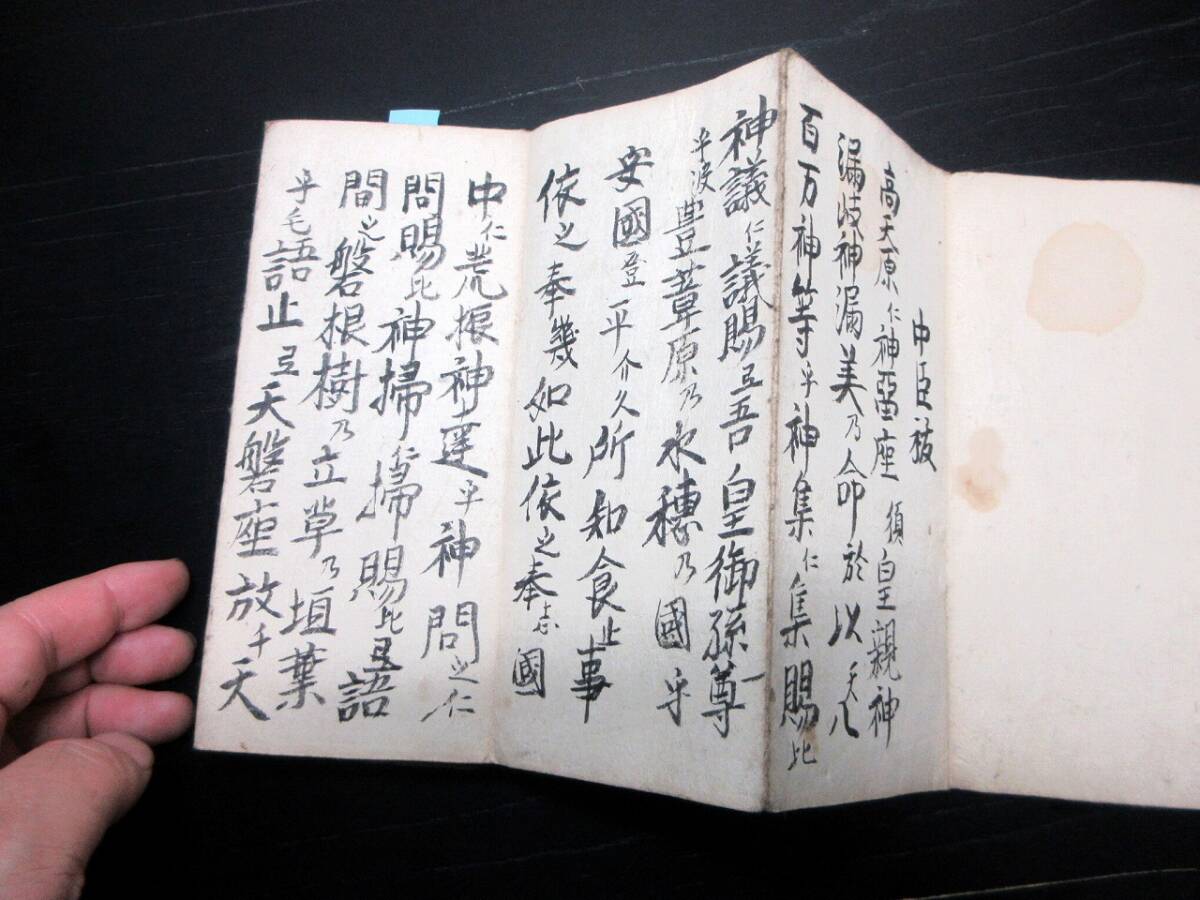 中臣祓
高天原仁神畱座須皇親神
漏岐神漏美乃命於以天八
百万神等乎神集仁集賜比
神議仁議賜弖吾皇御孫尊
乎波豊葦原乃水穂乃國乎
安國登平介久所知食止事
依之奉幾如此依之奉志國
中仁荒振神達乎神問之仁
問賜比神掃仁掃賜比弖語
問之磐根樹乃立草乃垣葉
乎毛語止弖天磐座放千天